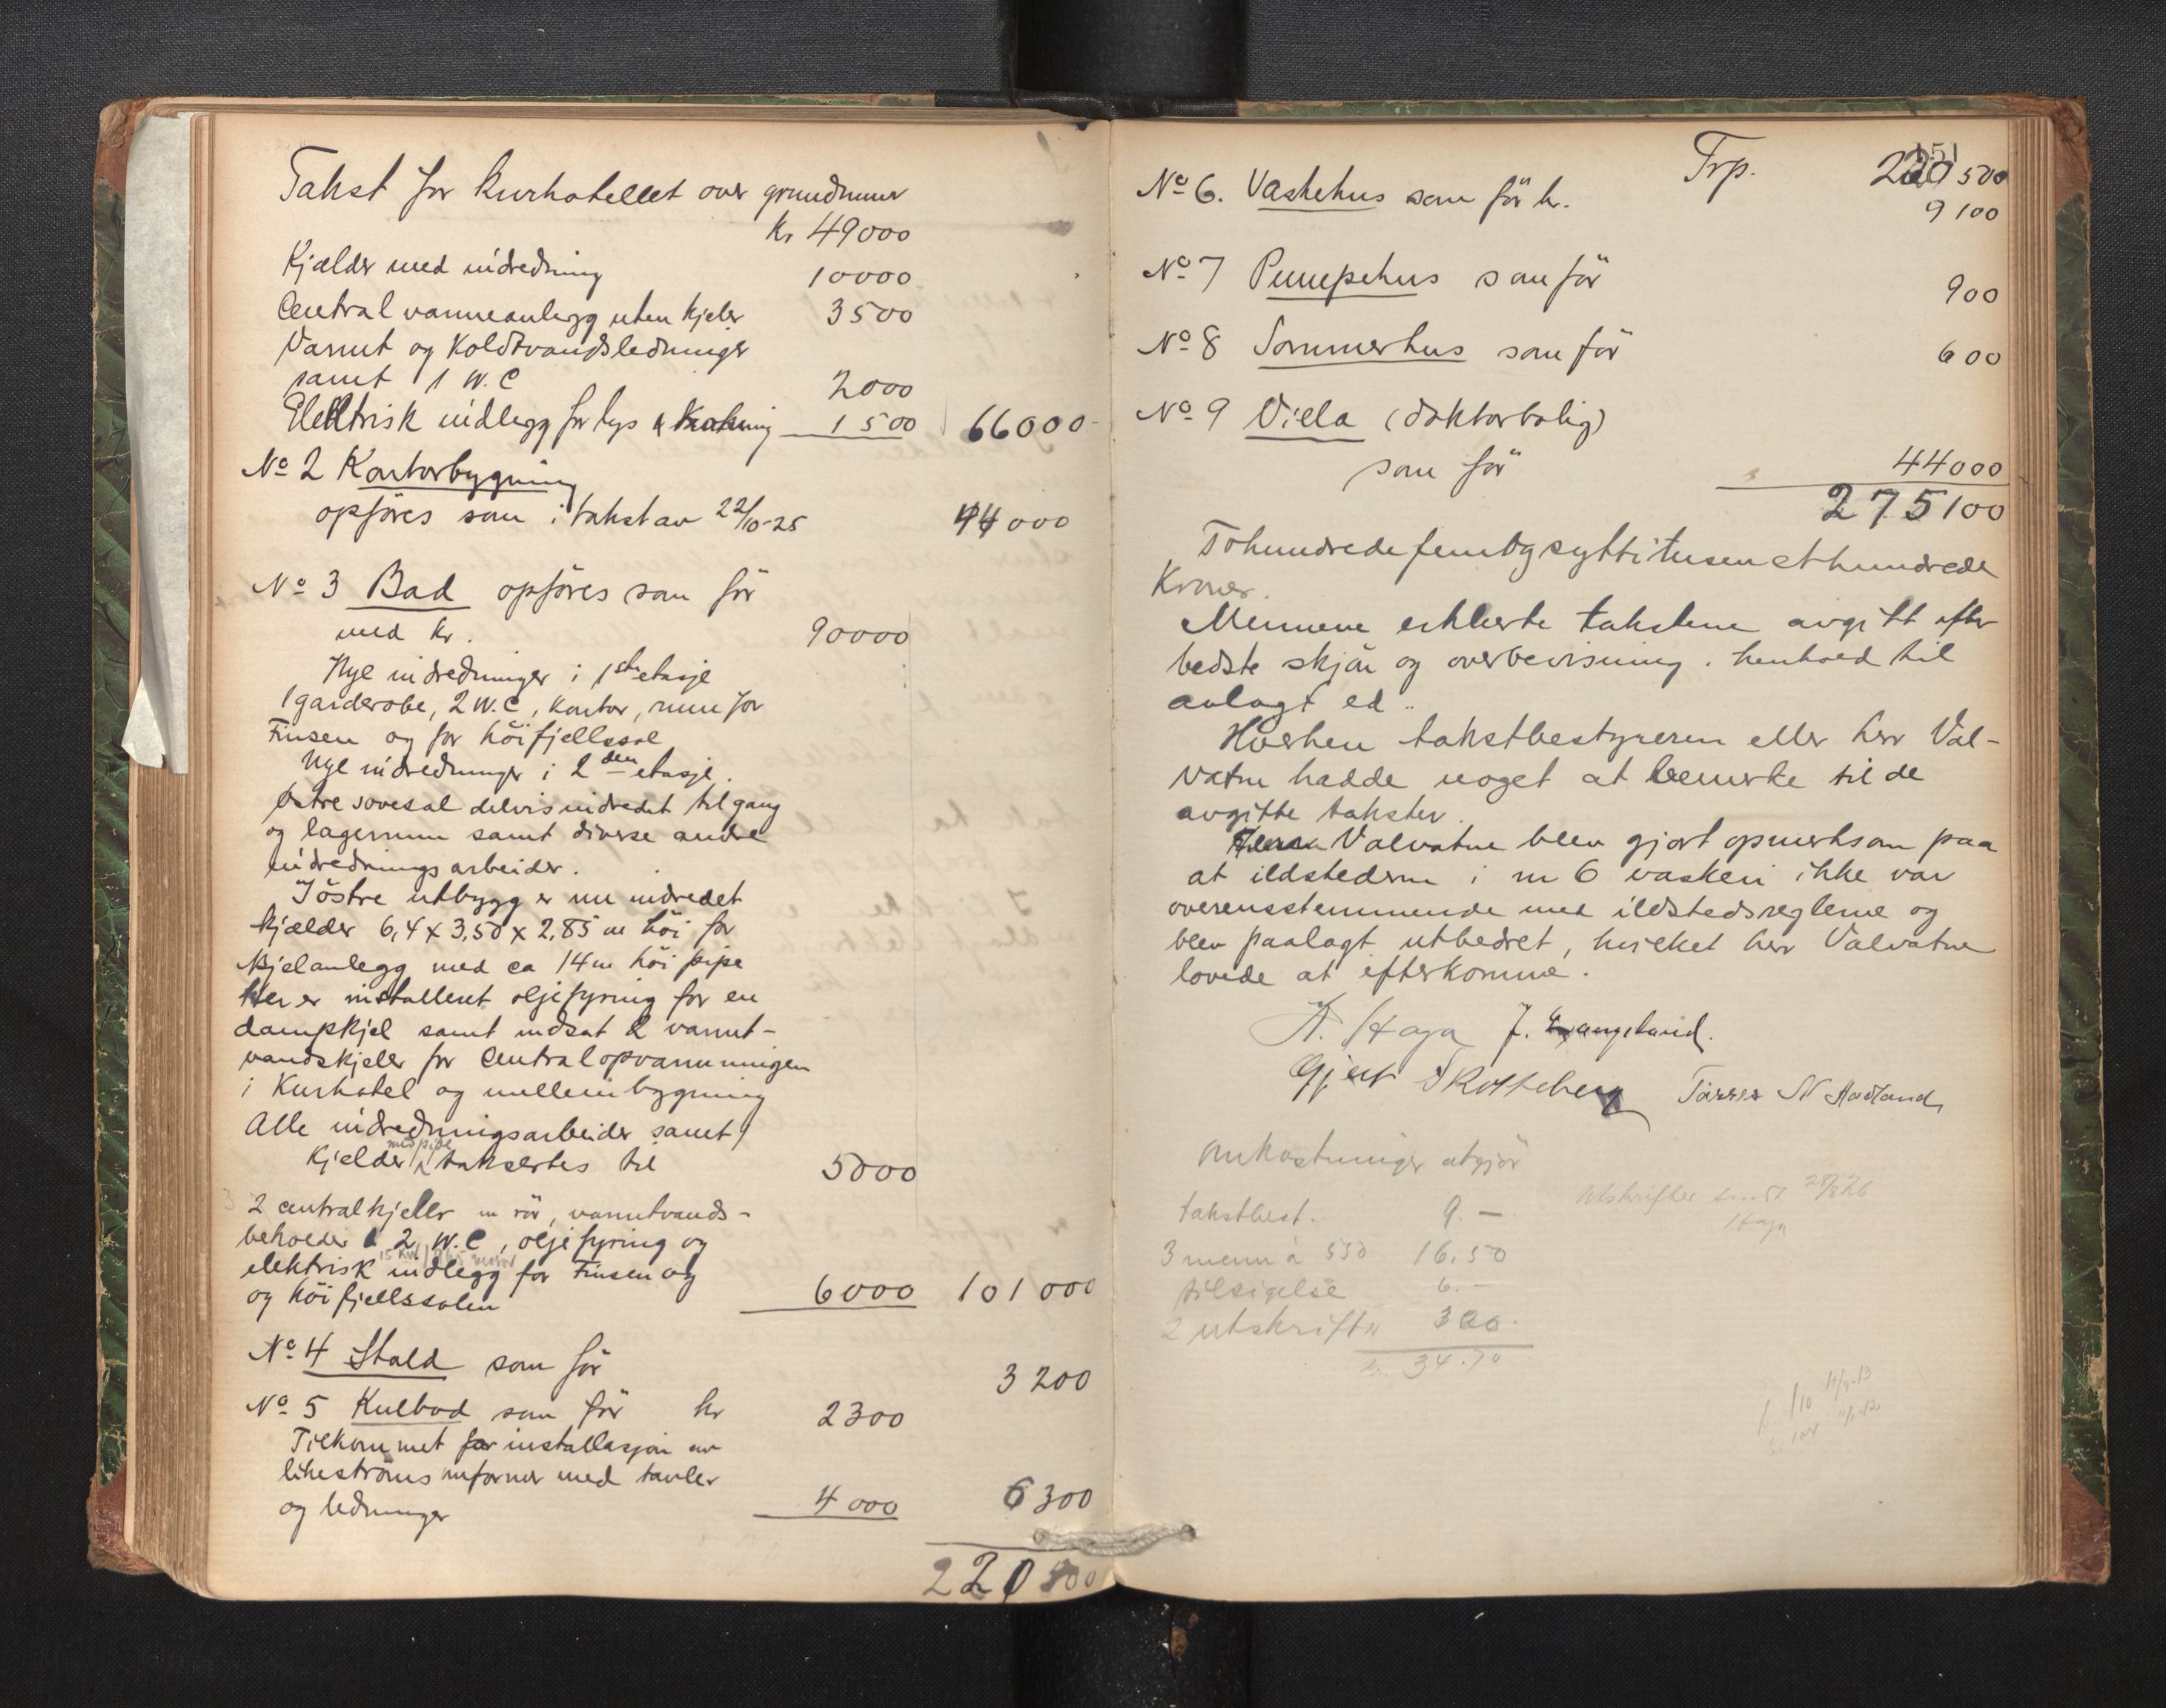 Takst for kurhotellet over grundmur
kr 49000
Kjælder med indredning 10000
Central varmeanlegg uten kjeler 3500
Varmt og Koldtvandsledninger
samt 1 W.C 2000
Elektrisk indlegg for lys & kokning 1500 66000-
No 2 Kontorbygning
opføres som i takst av 22/10-25 44000
No 3 Bad opföres som för
med kr. 90000
Nye indredninger i 1ste etasje
1 garderobe, 2 W.C, kontor, rum for
Finsen og for höifjellssol
Nye indredninger i 2den etasje.
Östre sovesal delvis indredet til gang
og lagerrum samt diverse andre
indrednings arbeider.
I östre utbygg er nu indredet
kjælder 6,4 x 3,50 x 2,85 m höi for
kjelanlegg med ca 14 m höi pipe
Her er installeret oljefyring for en
dampkjel samt indsat 2 varmt-
vandskjeler for Centralopvarmningen
i Kurhotel og mellembygning
Alle indredningsarbeider samt
med pipe
Kjelder takseres til 5000
2 centralkjeller m rör, varmtvands-
beholder & 2 W.C, oljefyring og
elektrisk indlegg for Finsen og
og höifjellssolen 6000 101000
No 4 Stald som för 3200
No 5 Kulbod som för kr 2300
Tilkommet for installasjon av
likeströms omformer med tavler
og ledninger 4000 6300
220500
151
Trp. 220500
No 6. Vaskehus som för kr. 9100
No 7 Pumpehus som för 900
No 8 Sommerhus som för 600
No 9 Villa (doktorbolig)
som för 44000
275100
Tohundredefemtogsyttitusenethundrede
Kroner.
Mennene erklerte takstene avgitt efter
bedste skjön og overbevisning i henhold til
avlagt ed.
Hverken takstbestyreren eller herr Val-
vatne hadde noget at bemerke til de
avgitte takster.
Herr Valvatne blev gjort opmerksom paa
at ildstederne i nr 6 vaskeri ikke var
overensstemmende med ildstedsreglene og
blev paalagt utbedret, hvilket herr Valvatne
lovede at efterkomme.
A. Haga J. Vangeland.
Gjert Skotteberg Tørres N Hadland
Omkostninger utgjör
takstbest. 9.-
3 menn à 550 16.50
tilsigelse 6.-
2 utskrifter 320
kr. 34.70
Utskrifter sendt 28/8 26
Haga